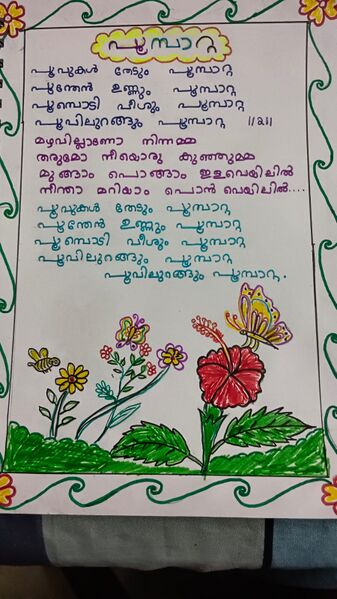 പൂമ്പാറ്റ
പൂവുകൾ തേടും പൂമ്പാറ്റ
പൂന്തേൻ ഉണ്ണും പൂമ്പാറ്റ
പൂമ്പൊടി വീശും പൂമ്പാറ്റ
പൂവിലുറങ്ങും പൂമ്പാറ്റ ॥2॥
മഴവില്ലാണോ നിന്നമ്മ
തരുമോ നീയൊരു കുഞ്ഞുമ്മ
മുങ്ങാം പൊങ്ങാം ഇളവെയിലിൽ
നീന്താ മറിയാം പൊൻ വെയിലിൽ....
പൂവുകൾ തേടും പൂമ്പാറ്റ
പൂന്തേൻ ഉണ്ണും പൂമ്പാറ്റ
പൂമ്പൊടി വീശും പൂമ്പാറ്റ
പൂവിലുറങ്ങും പൂമ്പാറ്റ
പൂവിലുറങ്ങും പൂമ്പാറ്റ.